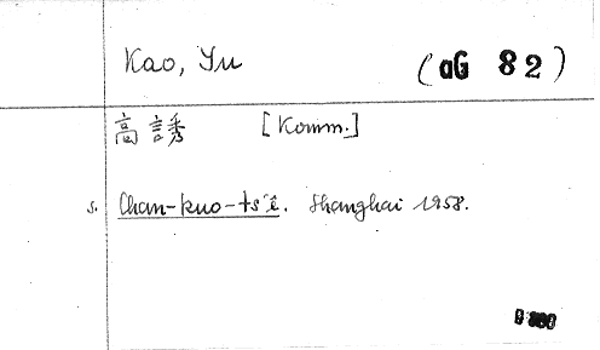 Kao, Yu (aG 82)
高誘 [Komm.]
s. Chan-kuo-ts'ê. Shanghai 1958.